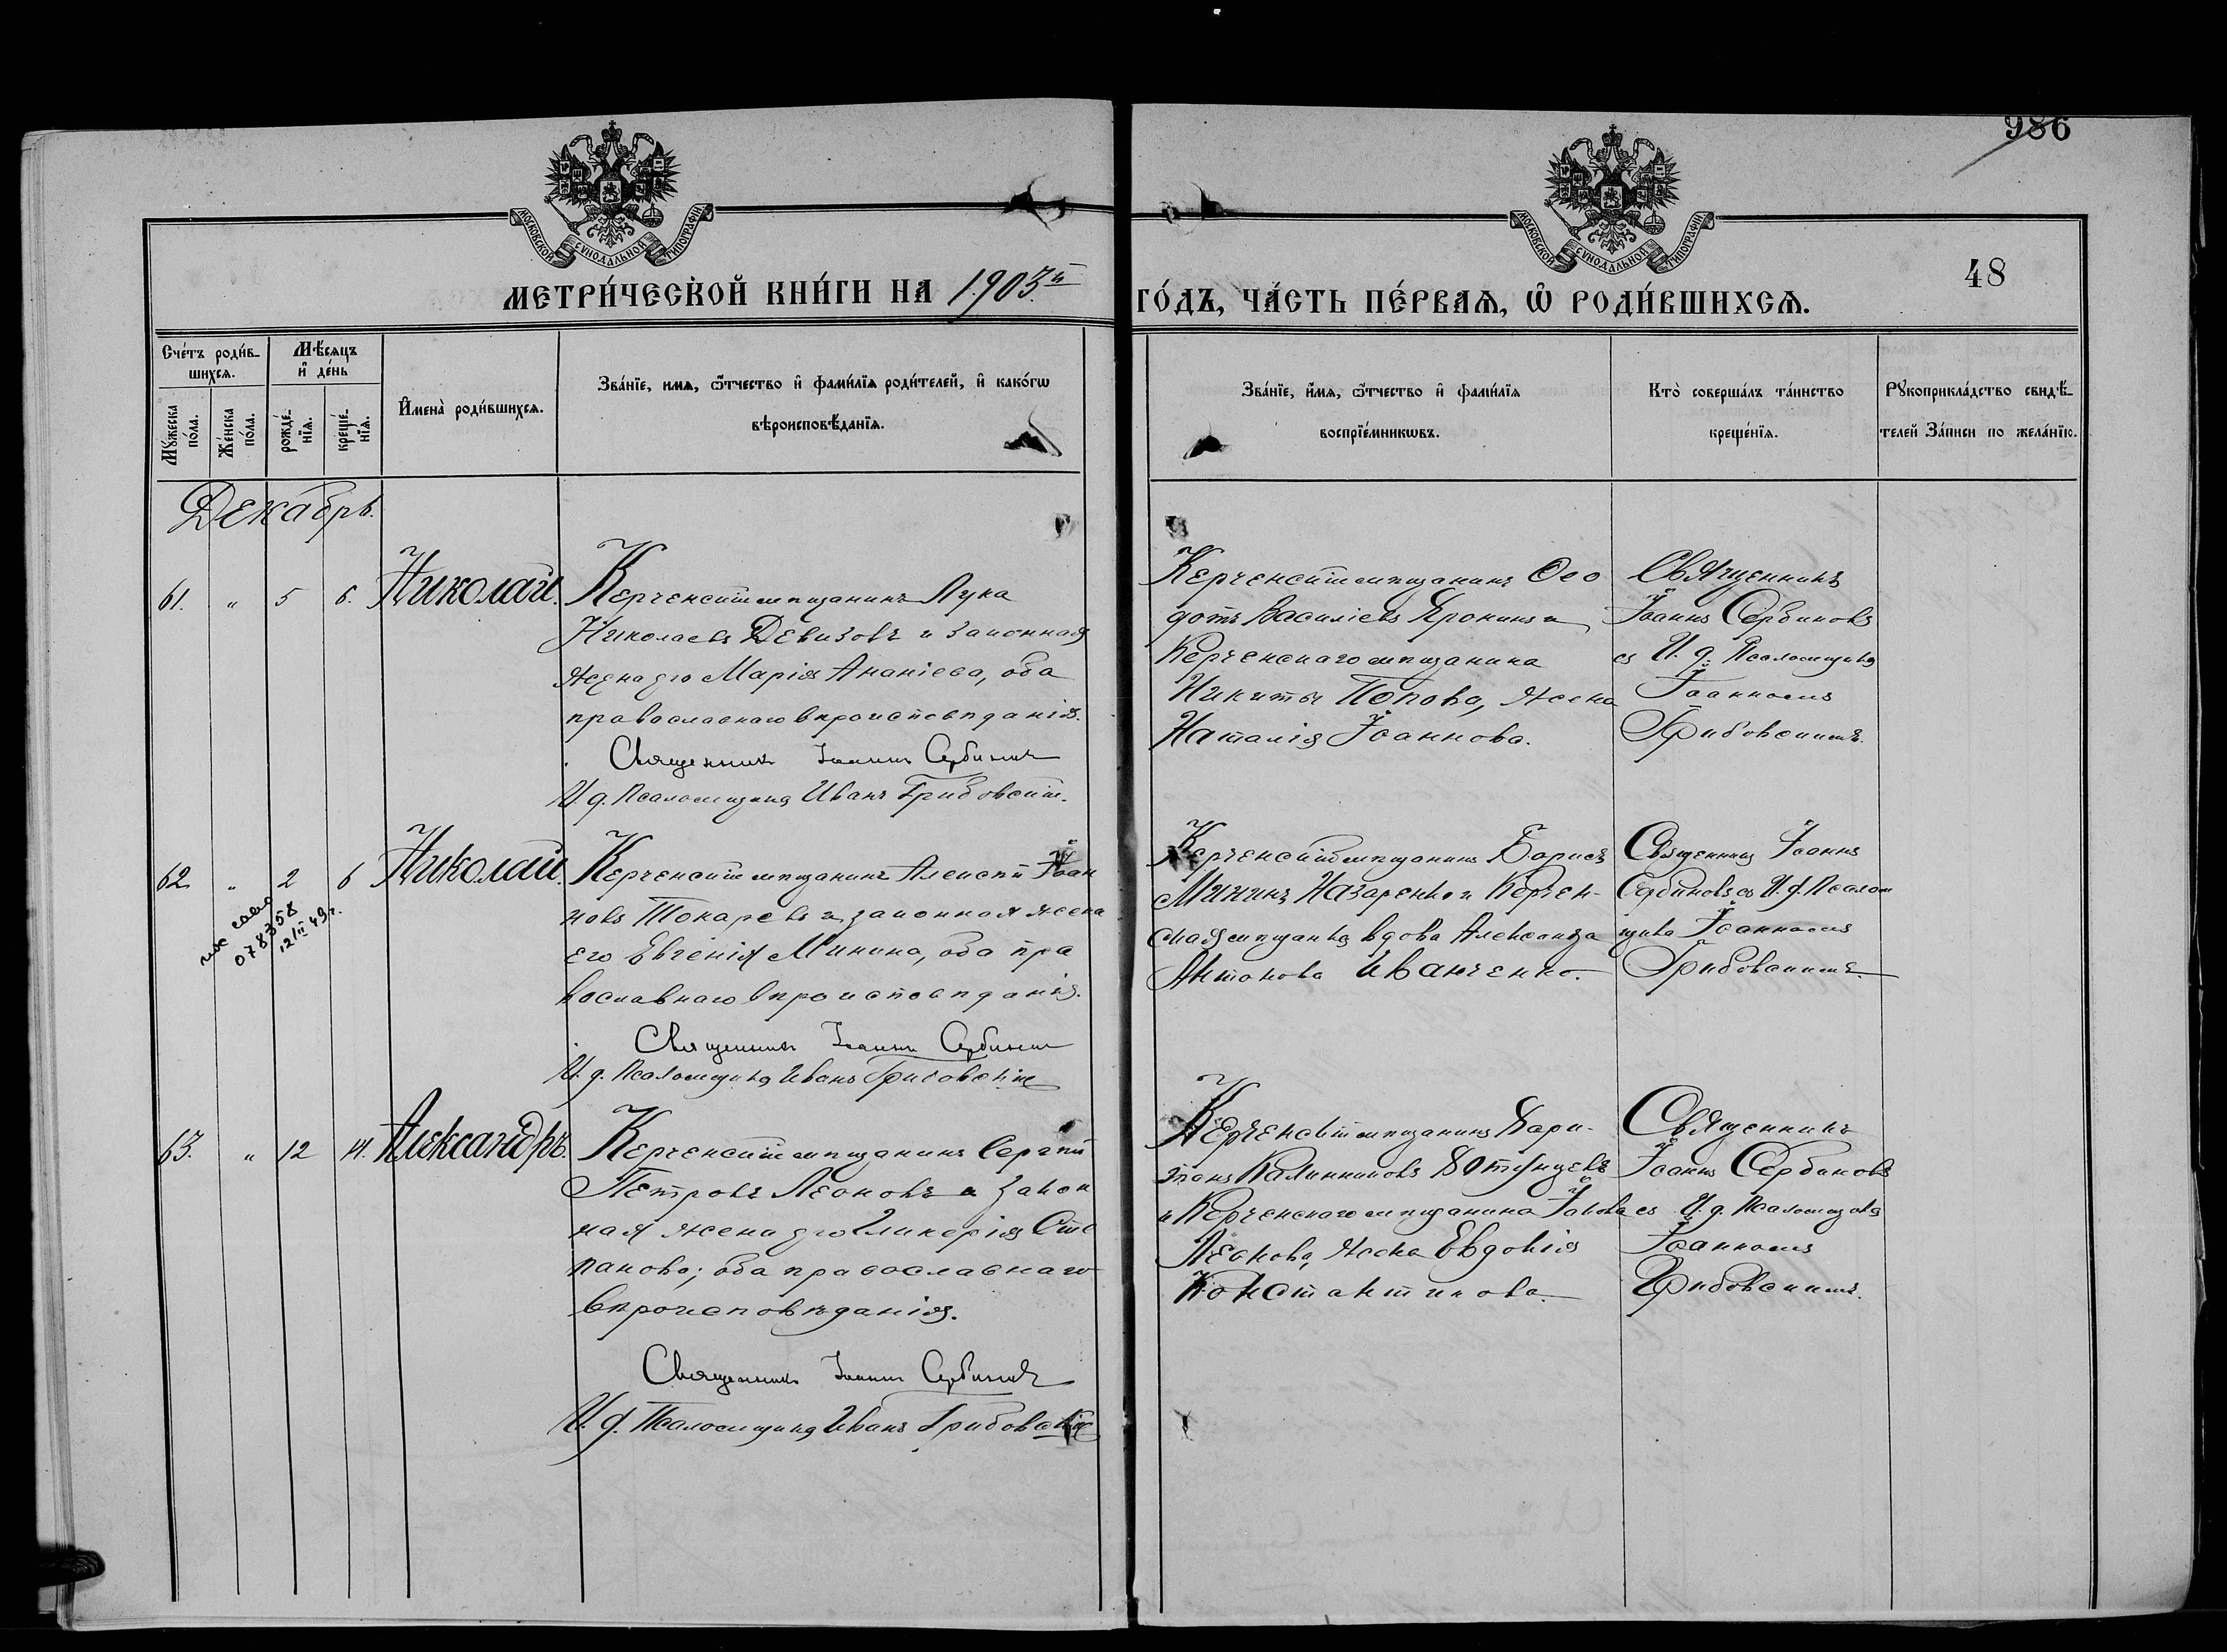 986
МОСКОВСКОЙ СУНОДАЛЬНОЙ ТИПОГРАФІИ
МОСКОВСКОЙ СУНОДАЛЬНОЙ ТИПОГРАФІИ
48
МЕТРИ́ЧЕСКОЙ КНИ́ГИ НА 1903й
ГО́ДЪ, ЧА́СТЬ ПЕ́РВАѦ, Ѡ҆ РОДИ́ВШИХСѦ.
Сче́тъ роди́в-
шихсѧ.
Мꙋ́жеска по́ла.
Же́нска по́ла.
Мѣ́сѧцъ
и҆ де́нь
рожде́-
нїѧ.
креще́-
нїѧ.
И҆мена̀ роди́вшихсѧ.
Зва́нїе, имѧ, ѻ҆́тчество и҆ фами́лїѧ роди́телей, и҆ како́гѡ
вѣроисповѣ́данїѧ.
Зва́нїе, и҆́мѧ, ѻ҆́тчество и҆ фами́лїѧ
воспрїе́мникѡвъ.
Кто̀ соверша́лъ та́инство
креще́нїѧ.
Рꙋкоприкла́дство свидѣ́-
телей За́писи по жела́нїю.
Декабрь.
61. " 5 6. Николай.
Керченскій мѣщанинъ Лука
Николаевъ Девизовъ и законная
жена его Марія Ананіева, оба
православнаго вѣроисповѣданія.
Священникъ Іоаннъ Сербиновъ
И. д. Псаломщика Иванъ Грибовскій.
Керченскій мѣщанинъ Ѳео
дотъ Васильевъ Яронинъ и
Керченскаго мѣщанина
Никиты Попова, жена
Наталія Іоаннова.
Священникъ
Іоаннъ Сербиновъ
съ И. д. Псаломщика
Іоанномъ
Грибовскимъ.
62. " 2 6 Николай.
078358
12/II 49 г.
Керченскій мѣщанинъ Алексѣй Іоан
новъ Токаревъ и законная жена
его Евгенія Минина, оба пра
вославнаго вѣроисповѣданія.
Священникъ Іоаннъ Сербиновъ
И. д. Псаломщика Иванъ Грибовскій
Керченскій мѣщанинъ Борисъ
Мининъ Назаренко и Керчен-
ская мѣщанка вдова Александра
Антонова Иванченко.
Священникъ Іоаннъ
Сербиновъ съ И. д. Псалом
щика Іоанномъ
Грибовскимъ.
63. " 12 14. Александръ.
Керченскій мѣщанинъ Сергѣй
Петровъ Леоновъ и закон
ная жена его Гликерія Сте
панова; оба православнаго
вѣроисповѣданія.
Священникъ Іоаннъ Сербиновъ
И. д. Псаломщика Иванъ Грибовскій
Керченскій мѣщанинъ Хари-
тонъ Калинниковъ
и Керченскаго мѣщанина Іакова
Леонова, жена Евдокія
Константинова.
Священникъ
Іоаннъ Сербиновъ
съ И. д. Псаломщика
Іоанномъ
Грибовскимъ.